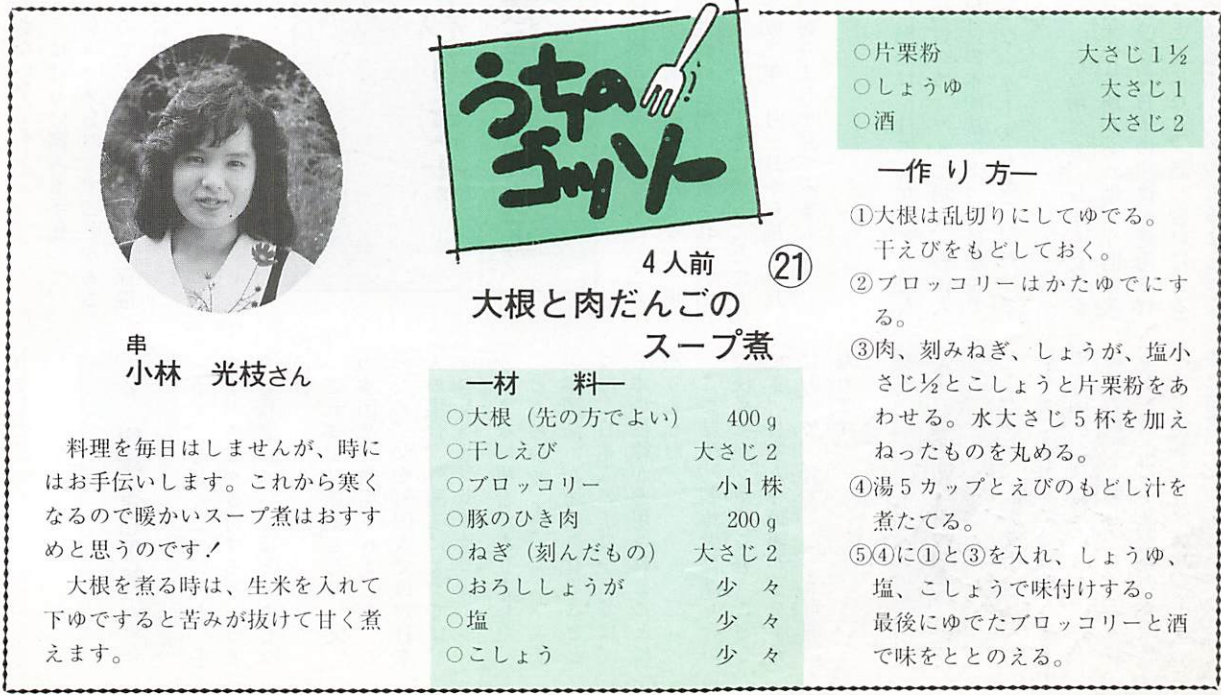 串
小林 光枝さん
料理を毎日はしませんが、時に
はお手伝いします。これから寒く
なるので暖かいスープ煮はおすす
めと思うのです!
大根を煮る時は、生米を入れて
下ゆですると苦みが抜けて甘く煮
えます。
うちの
ゴッソー
4人前 ㉑
大根と肉だんごの
スープ煮
―材 料―
○大根(先の方でよい) 400g
○干しえび 大さじ2
○ブロッコリー 小1株
○豚のひき肉 200g
○ねぎ(刻んだもの) 大さじ2
○おろししょうが 少々
○塩 少々
○こしょう 少々
○片栗粉 大さじ1½
○しょうゆ 大さじ1
○酒 大さじ2
―作り方―
①大根は乱切りにしてゆでる。
干えびをもどしておく。
②ブロッコリーはかたゆでにす
る。
③肉、刻みねぎ、しょうが、塩小
さじ½とこしょうと片栗粉をあ
わせる。水大さじ5杯を加え
ねったものを丸める。
④湯5カップとえびのもどし汁を
煮たてる。
⑤④に①と③を入れ、しょうゆ、
塩、こしょうで味付けする。
最後にゆでたブロッコリーと酒
で味をととのえる。